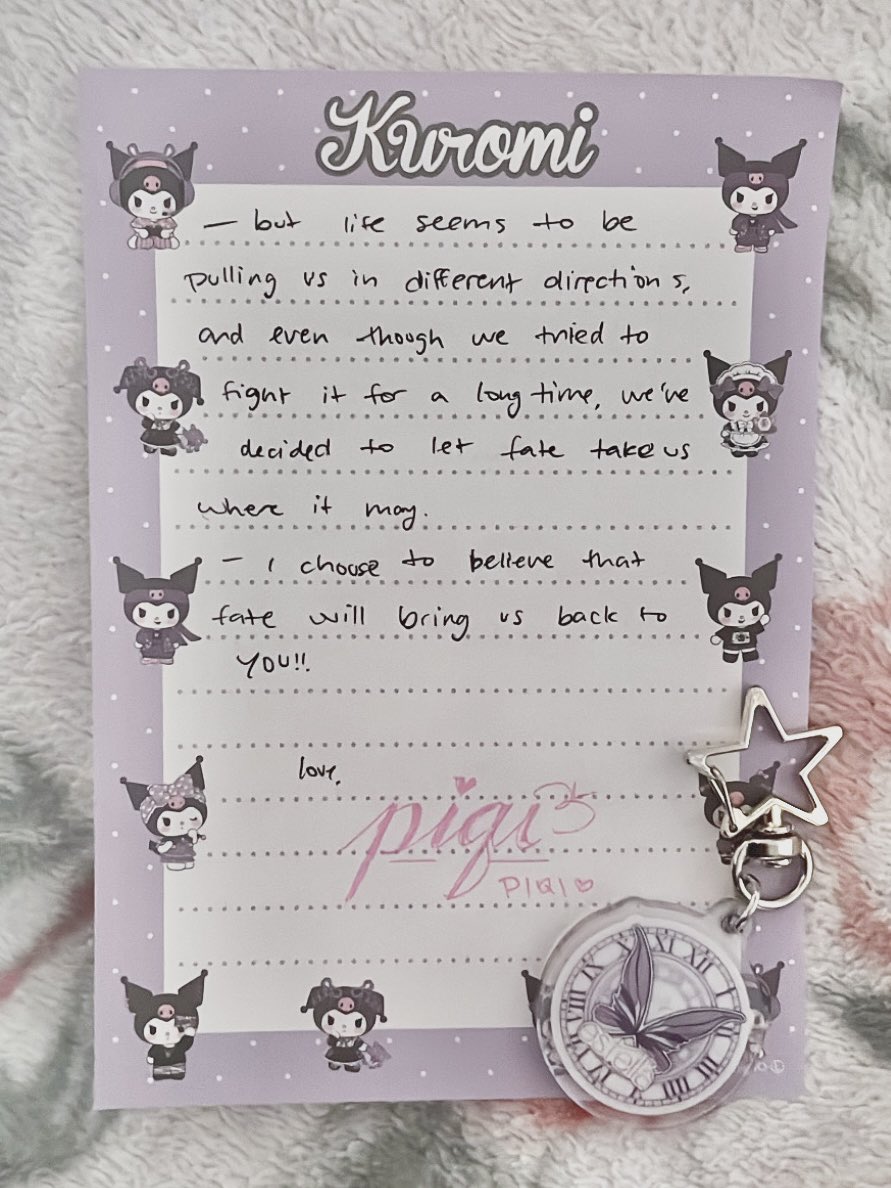 Kuromi
— but life seems to be
pulling us in different directions,
and even though we tried to
fight it for a long time, we've
decided to let fate take us
where it may.
– I choose to believe that
fate will bring us back to
YOU!!
love,
piqi
PIQI♡
XI XII I
IX
VIII
III
IIII